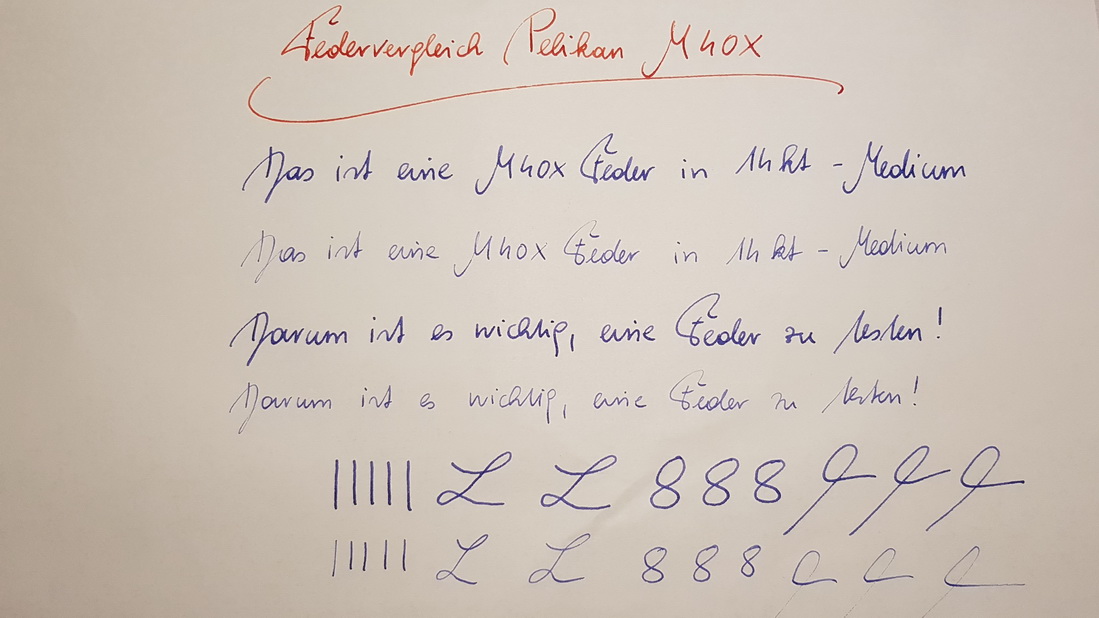 Federvergleich Pelikan M40X
Das ist eine M40X Feder in 14kt - Medium
Das ist eine M40X Feder in 14kt - Medium
Darum ist es wichtig, eine Feder zu testen!
Darum ist es wichtig, eine Feder zu testen!
||||| L L 888
||||| L L 888